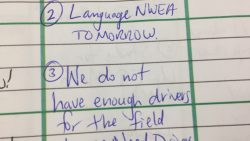 ② Language NWEA
TOMORROW.
!
③ We do not
have enough drivers
for the field